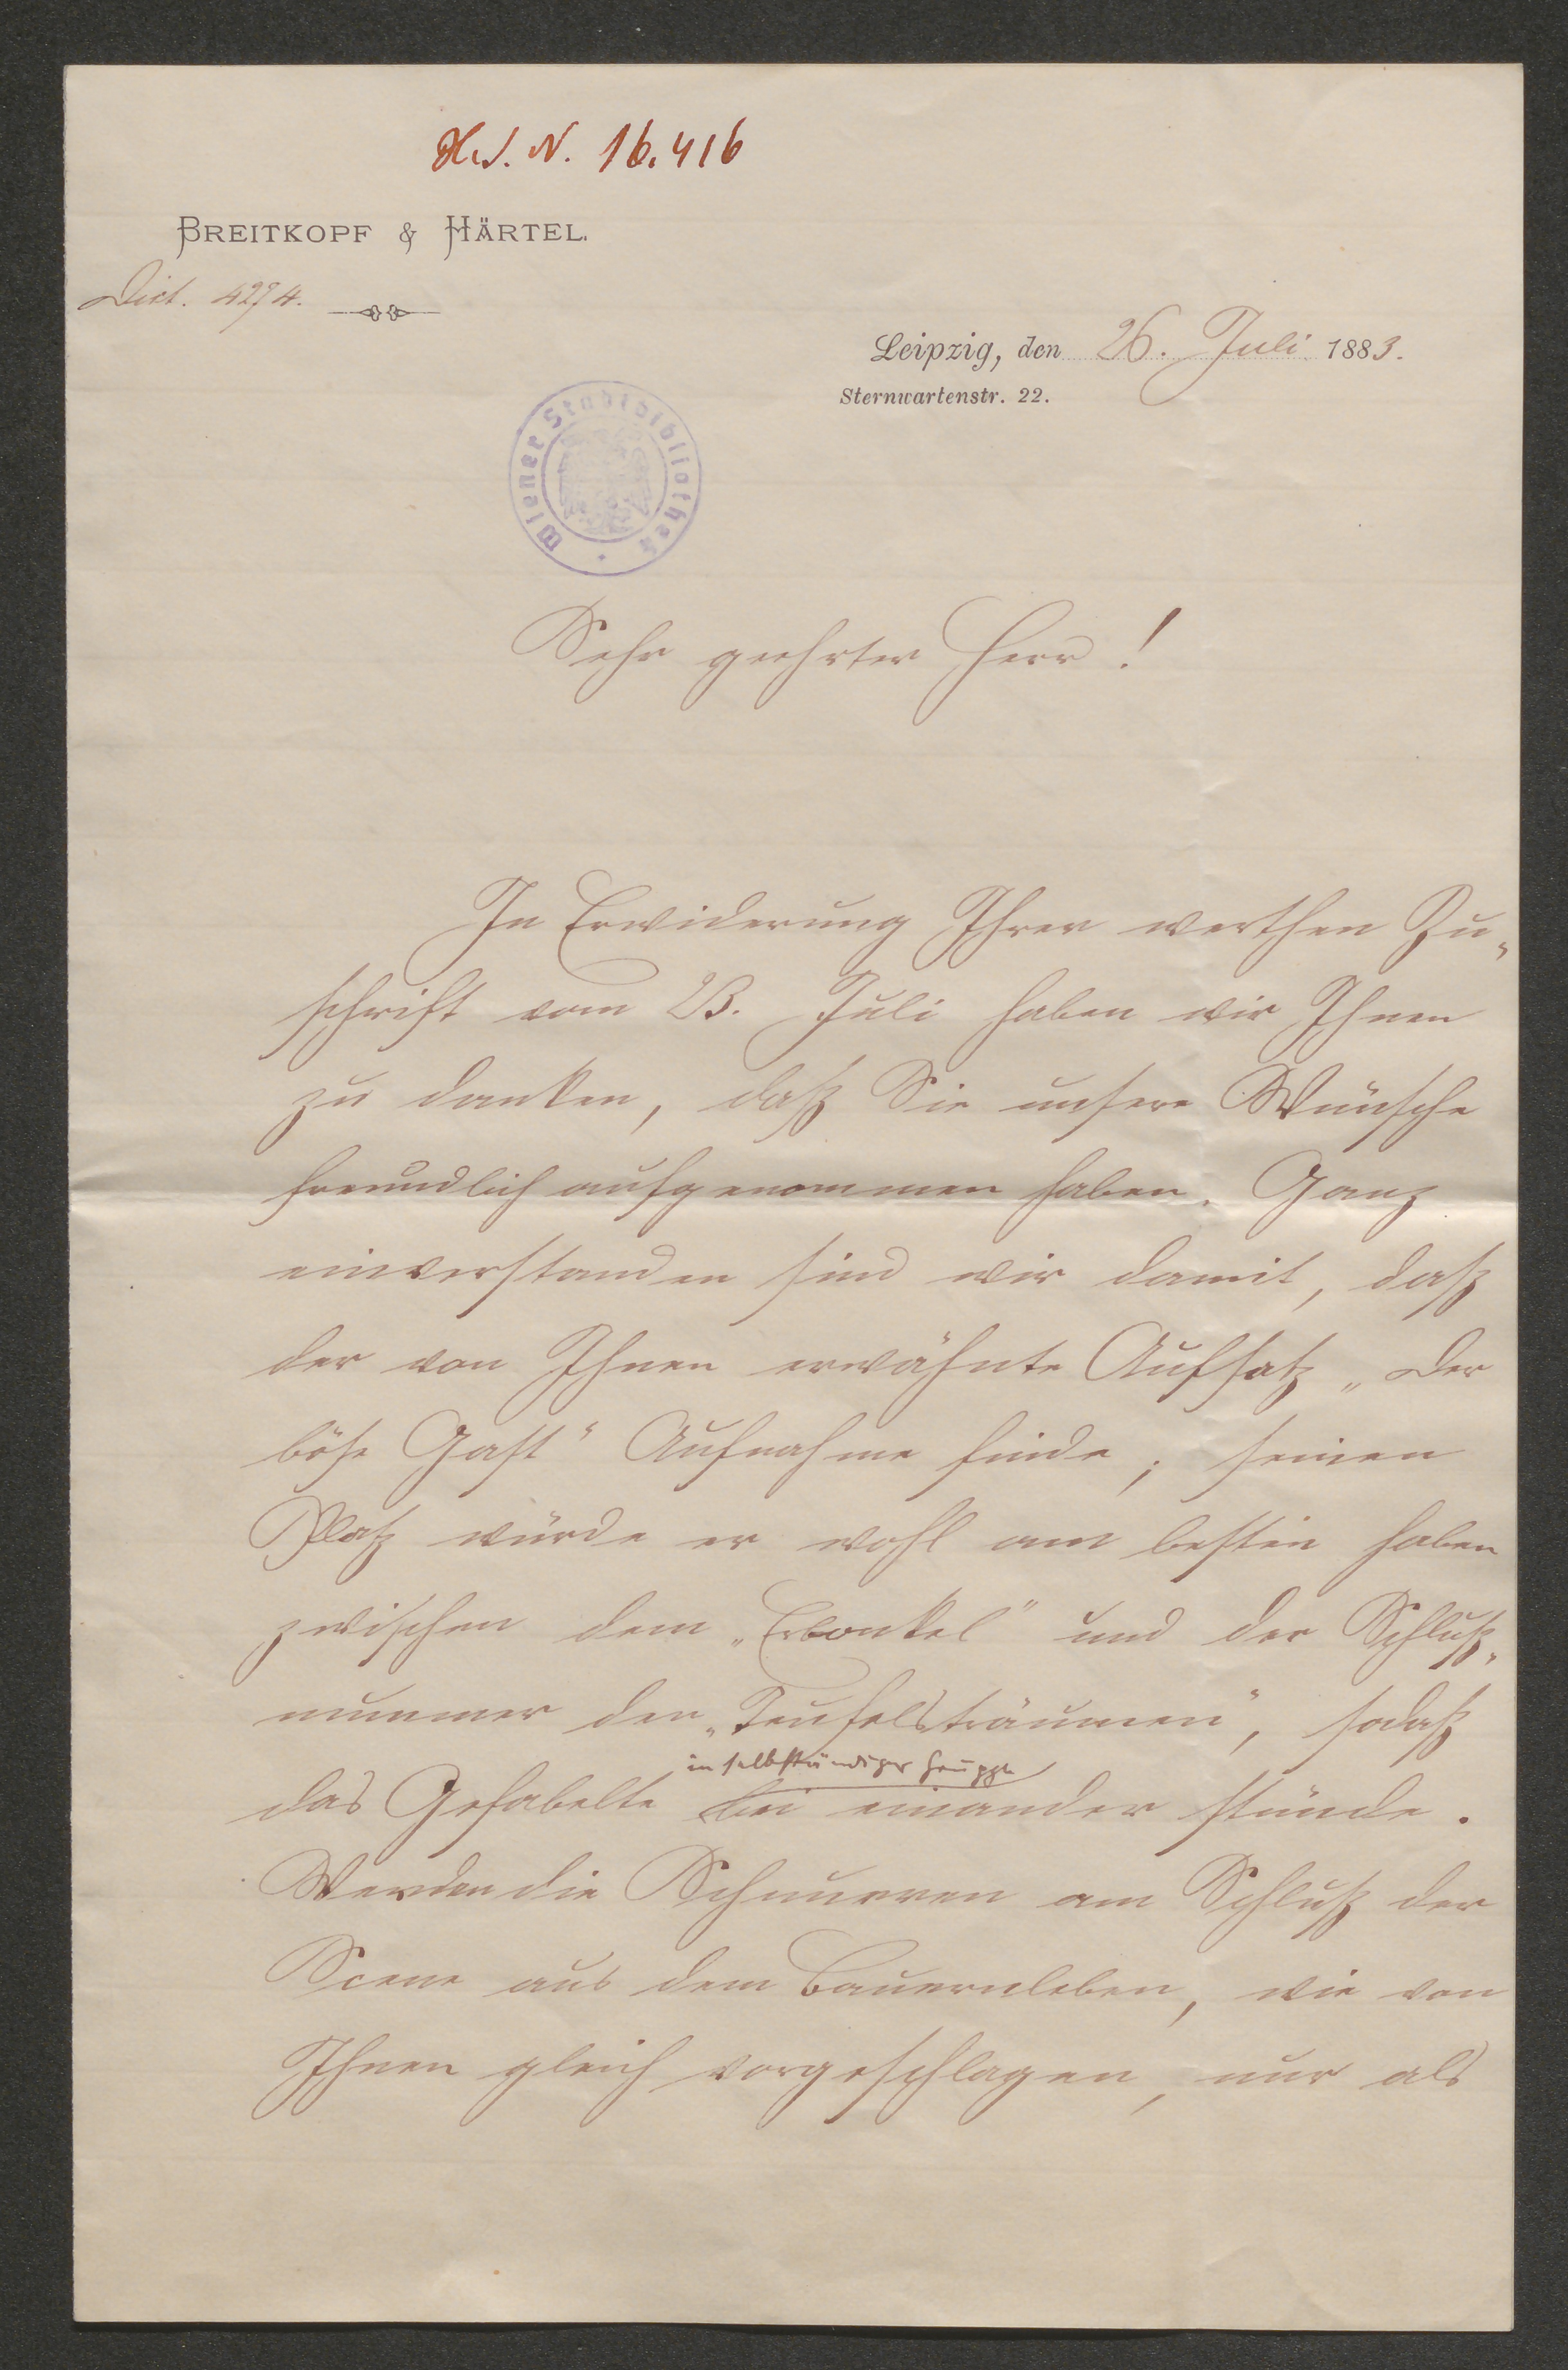 H.I.N. 16.416
BREITKOPF & HÄRTEL.
Dict. 4294.
Leipzig, den 26. Juli 1883.
Sternwartenstr. 22.
Wiener Stadtbibliothek
Sehr geehrter Herr!
In Erwiderung Ihrer werthen Zu„
schrift vom 23. Juli haben wir Ihnen
zu danken, daß Sie unsere Wünsche
freundlich aufgenommen haben. Ganz
einverstanden sind wir damit, daß
der von Ihnen erwähnte Aufsatz „Der
böse Gast“ Aufnahme finde; seinen
Platz würde er wohl am besten haben
zwischen dem „Erbonkel“ und der Schluß„
nummer den „Teufelsträumen“, sodaß
in selbständiger Gruppe
das Gefabelte bei einander stünde.
Werden die Schnurren am Schluß der
Scene aus dem Bauernleben, wie von
Ihnen gleich vorgeschlagen, nur als